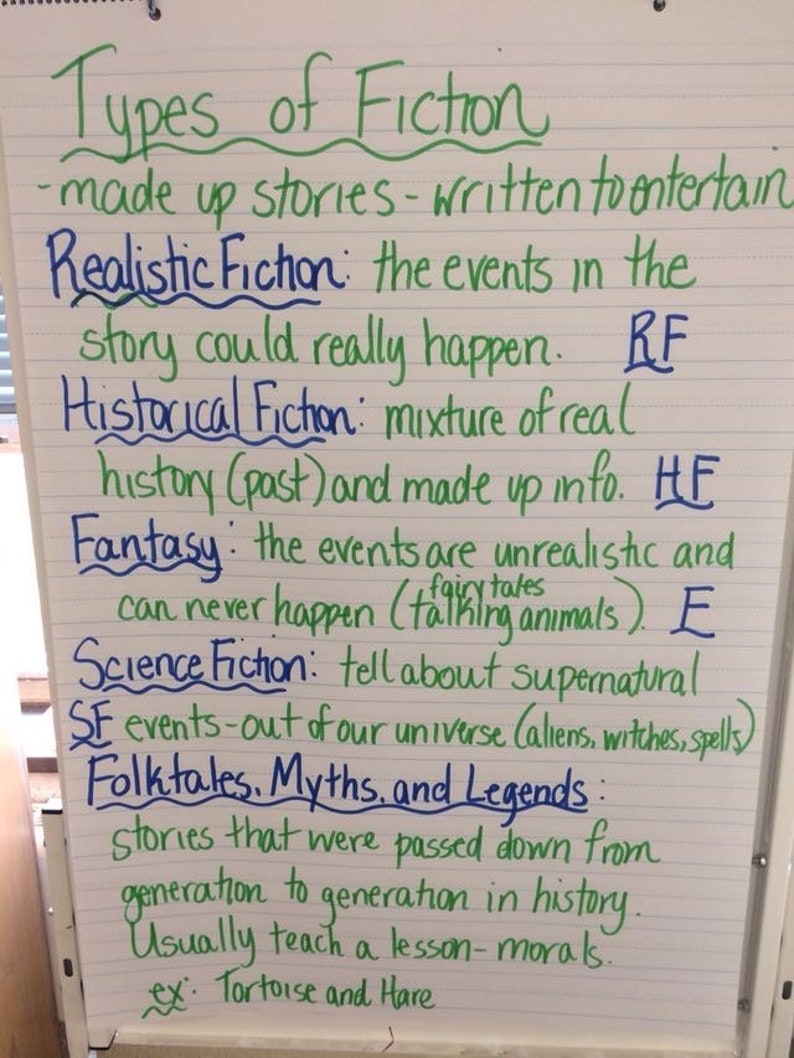 Types of Fiction
-made up stories - written to entertain
Realistic Fiction: the events in the
story could really happen. RF
Historical Fiction: mixture of real
history (past) and made up info. HF
Fantasy: the events are unrealistic and
fairy tales
can never happen (talking animals). F
Science Fiction: tell about supernatural
SF events-out of our universe (aliens, witches, spells)
Folktales, Myths, and Legends:
stories that were passed down from
generation to generation in history.
Usually teach a lesson- morals.
ex: Tortoise and Hare